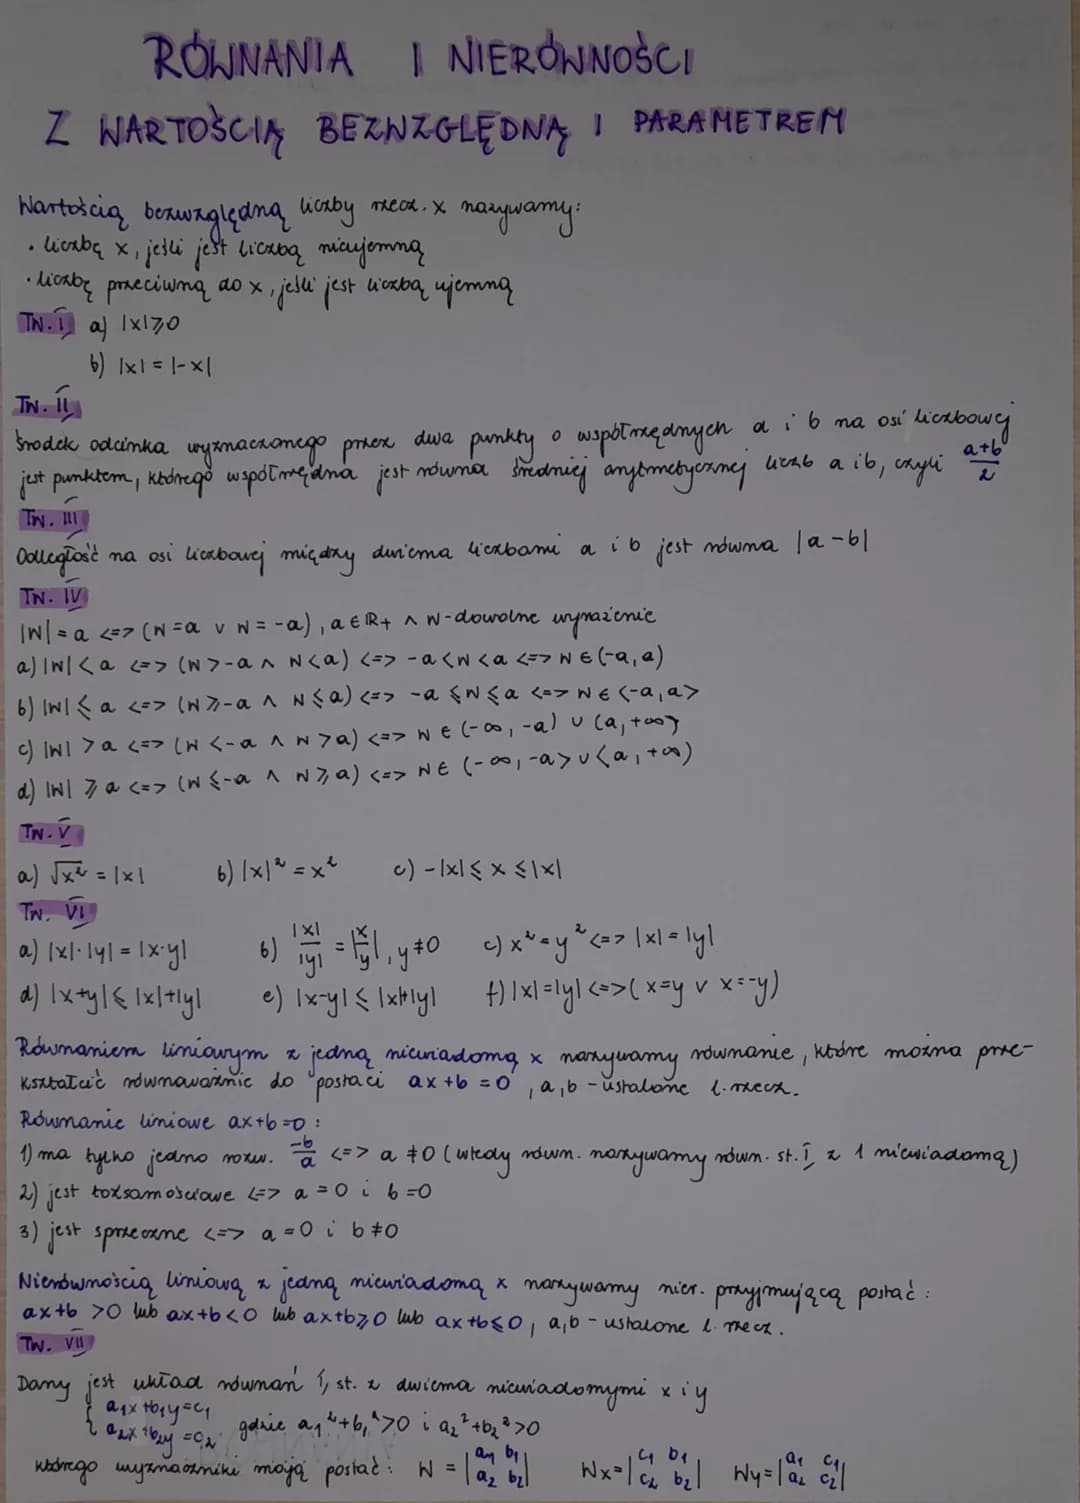 RÓWNANIA I NIERÓWNOŚCI
Z WARTOŚCIĄ BEZWZGLĘDNĄ I PARAMETREM
Wartością bezwzględną liczby rzecz. x nazywamy:
• liczbę x, jeśli jest liczbą nieujemną
• liczbę przeciwną do x, jeśli jest liczbą ujemną
TW. I a) |x|⩾0
b) |x| = |-x|
TW. II
Środek odcinka wyznaczonego przez dwa punkty o współrzędnych a i b na osi liczbowej
jest punktem, którego współrzędna jest równa średniej arytmetycznej liczb a i b, czyli (a+b)/2
TW. III
Odległość na osi liczbowej między dwiema liczbami a i b jest równa |a-b|
TW. IV
|W| = a <=> (W=a ∨ W=-a), a∈ℝ+ ∧ W-dowolne wyrażenie
a) |W| < a <=> (W>-a ∧ W<a) <=> -a<W<a <=> W∈(-a,a)
b) |W| ⩽ a <=> (W⩾-a ∧ W⩽a) <=> -a⩽W⩽a <=> W∈<-a,a>
c) |W| > a <=> (W<-a ∧ W>a) <=> W∈(-∞,-a) ∪ (a,+∞)
d) |W| ⩾ a <=> (W⩽-a ∧ W⩾a) <=> W∈(-∞,-a>∪<a,+∞)
TW. V
a) √x² = |x| b) |x|² = x² c) -|x|⩽x⩽|x|
TW. VI
a) |x|·|y| = |x·y| b) |x|/|y| = |x/y|, y≠0 c) x²=y² <=> |x|=|y|
d) |x+y|⩽|x|+|y| e) |x-y|⩽|x|+|y| f) |x|=|y| <=> (x=y ∨ x=-y)
Równaniem liniowym z jedną niewiadomą x nazywamy równanie, które można prze-
kształcić równoważnie do postaci ax+b=0, a,b - ustalone l. rzecz.
Równanie liniowe ax+b=0:
1) ma tylko jedno rozw. -b/a <=> a≠0 (wtedy równ. nazywamy równ. st. I z 1 niewiadomą)
2) jest tożsamościowe <=> a=0 i b=0
3) jest sprzeczne <=> a=0 i b≠0
Nierównością liniową z jedną niewiadomą x nazywamy nier. przyjmującą postać:
ax+b >0 lub ax+b<0 lub ax+b⩾0 lub ax+b⩽0, a,b - ustalone l. rzecz.
TW. VII
Dany jest układ równań I st. z dwiema niewiadomymi x i y
{ a₁x+b₁y=c₁
{ a₂x+b₂y=c₂ gdzie a₁²+b₁²>0 i a₂²+b₂²>0
którego wyznaczniki mają postać: W = |a₁ b₁; a₂ b₂| Wx = |c₁ b₁; c₂ b₂| Wy = |a₁ c₁; a₂ c₂|